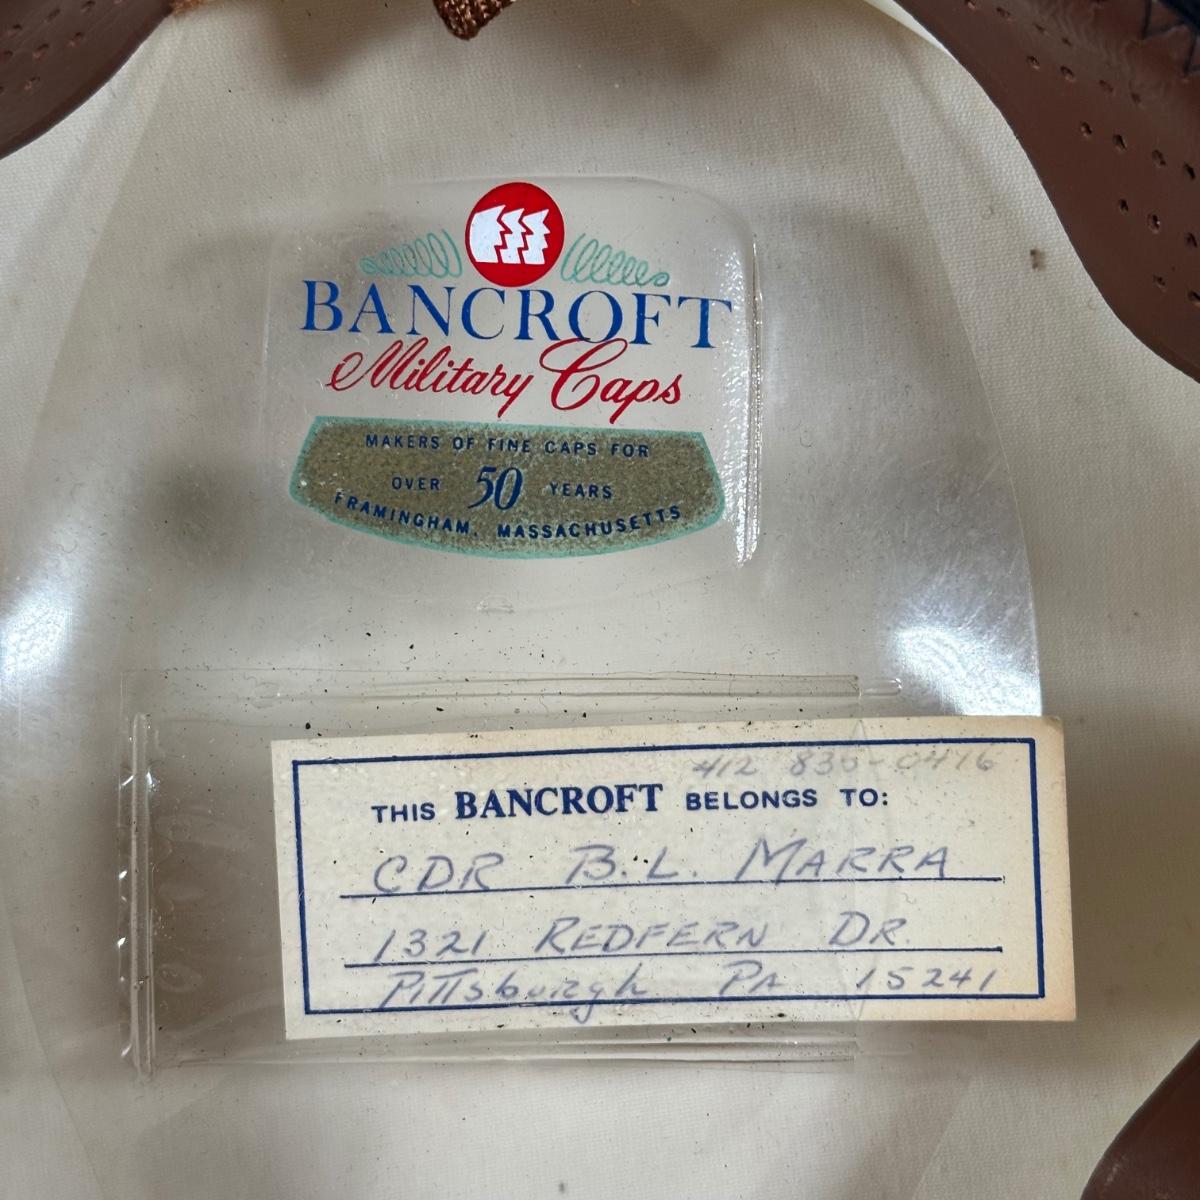 BANCROFT
Military Caps
MAKERS OF FINE CAPS FOR
OVER 50 YEARS
FRAMINGHAM, MASSACHUSETTS
412 835-0416
THIS BANCROFT BELONGS TO:
CDR B.L. MARRA
1321 REDFERN DR.
PITTsburgh PA 15241